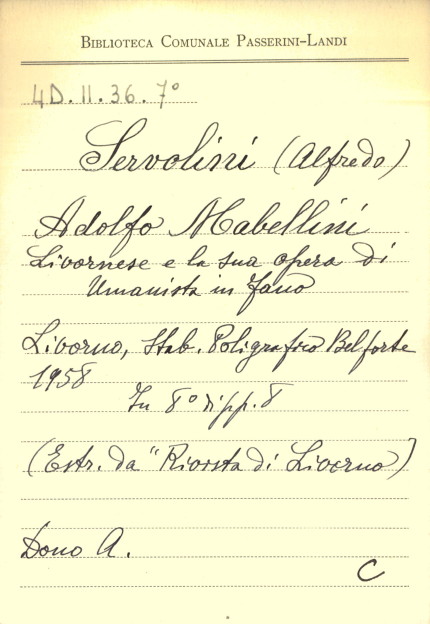 BIBLIOTECA COMUNALE PASSERINI-LANDI
4D.II.36.7°
Servolini (Alfredo)
Adolfo Mabellini
Livornese e la sua opera di
Umanista in Fano
Livorno, Stab. Poligrafico Belforte
1958
In 8° di pp. 8
(Estr. da "Rivista di Livorno)
Dono A.
C